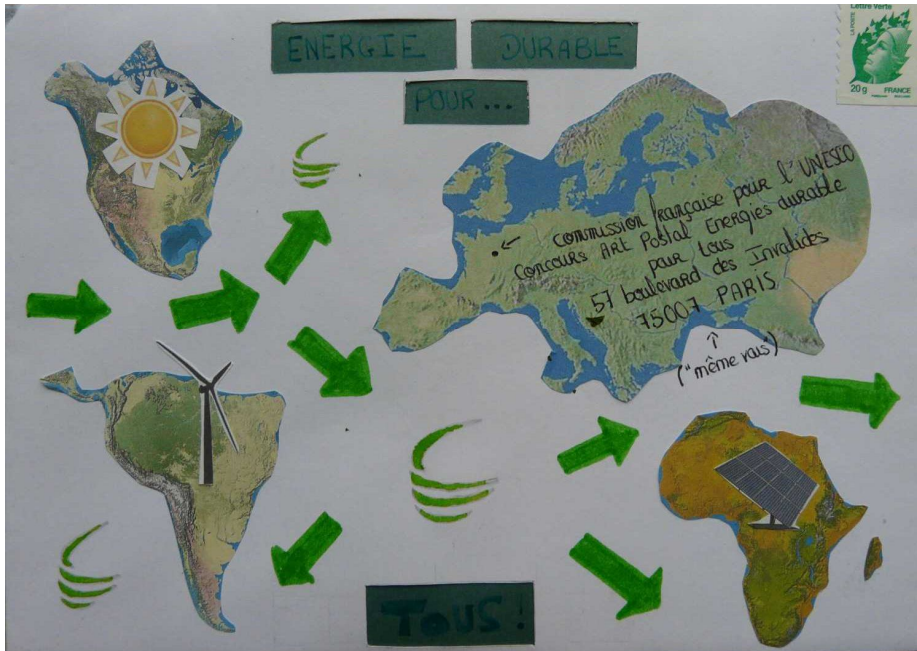 ENERGIE DURABLE
POUR...
Lettre Verte
LA POSTE
20g FRANCE
Commission française pour l'UNESCO
Concours Art Postal Energies durable
pour tous
57 boulevard des Invalides
75007 PARIS
TOUS!